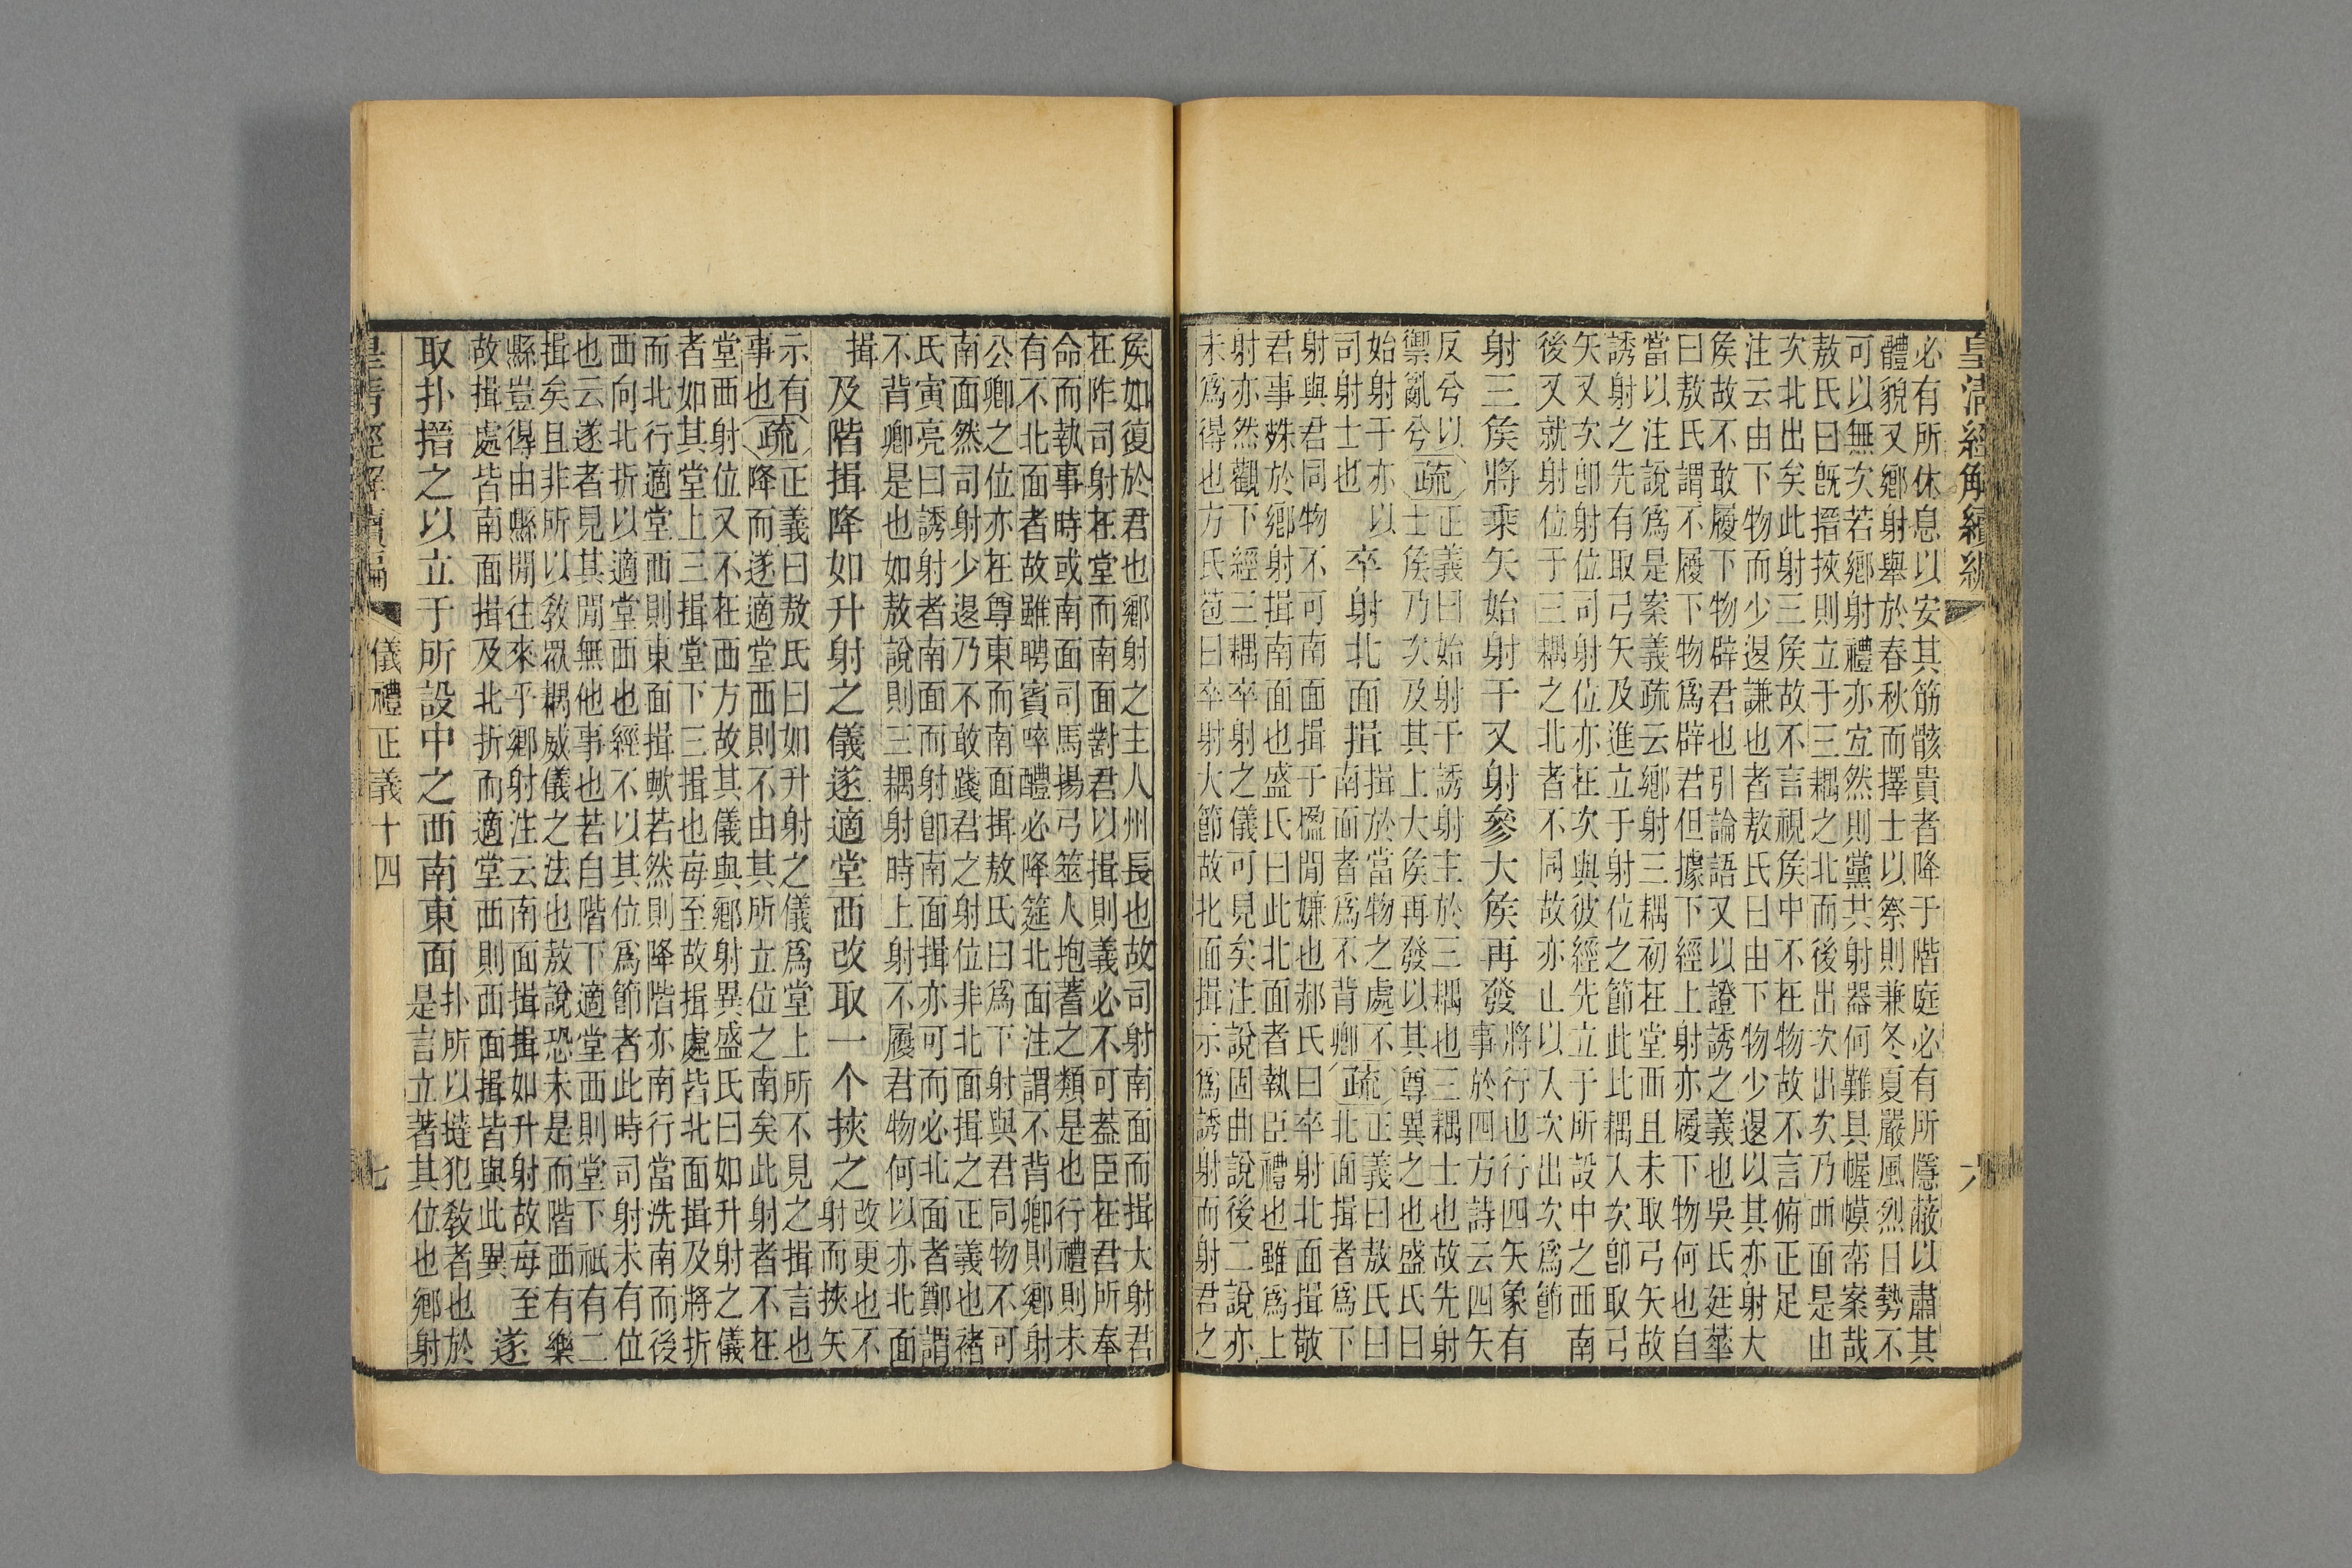 皇清經解續編　六
必有所休息以安其筋骸貴者降于階庭必有所隱蔽以肅其
體貌又鄉射舉於春秋而擇士以祭則兼冬夏嚴風烈日勢不
可以無次若鄉射禮亦宜然則黨其射器何難具幄幕帟案哉
敖氏曰旣搢挾則立于三耦之北而後出次出次乃西面是由
次北出矣此射三矦故不言視矦中不在物故不言俯正足
注云由下物而少退謙也者敖氏曰由下物少退以其亦射大
矦故不敢履下物辟君也引論語又以證誘之義也吳氏廷華
曰敖氏謂不履下物爲辟君但據下經上射亦履下物何也自
當以注說爲是案義疏云鄉射三耦初在堂西且未取弓矢故
誘射之先有取弓矢及進立于射位之節此比耦入次卽取弓
矢又次卽射位司射位亦在次與彼經先立于所設中之西南
後又就射位于三耦之北者不同故亦止以入次出次爲節
射三矦將乘矢始射干又射參大矦再發
將行也行四矢象有
事於四方詩云四矢
反兮以
禦亂兮
疏
正義曰始射干誘射主於三耦也三耦士也故先射
士矦乃次及其上大矦再發以其尊異之也盛氏曰
始射干亦以
司射士也
卒射北面揖
揖於當物之處不
南面者爲不背卿
疏
正義曰敖氏曰
北面揖者爲下
射與君同物不可南面揖于楹閒嫌也郝氏曰卒射北面揖敬
君事殊於鄉射揖南面也盛氏曰此北面者執臣禮也雖爲上
射亦然觀下經三耦卒射之儀可見矣注說固曲說後二說亦
未爲得也方氏苞曰卒射大節故北面揖示爲誘射而射君之
矦如復於君也鄉射之主人州長也故司射南面而揖大射君
在阼司射在堂而南面對君以揖則義必不可蓋臣在君所奉
命而執事時或南面司馬揚弓筮人抱蓍之類是也行禮則未
有不北面者故雖聘賓啐醴必降筵北面注謂不背卿則鄉射
公卿之位亦在尊東而南面揖敖氏曰爲下射與君同物不可
南面然司射少退乃不敢踐君之射位非北面揖之正義也褚
氏寅亮曰誘射者南面而射卽南面揖亦可而必北面者鄭謂
不背卿是也如敖說則三耦射時上射不履君物何以亦北面
揖
及階揖降如升射之儀遂適堂西改取一个挾之
改更也不
射而挾矢
示有
事也
疏
正義曰敖氏曰如升射之儀爲堂上所不見之揖言也
降而遂適堂西則不由其所立位之南矣此射者不在
堂西射位又不在西方故其儀與鄉射異盛氏曰如升射之儀
者如其堂上三揖堂下三揖也每至故揖處皆北面揖及將折
而北行適堂西則東面揖歟若然則降階亦南行當洗南而後
西向北折以適堂西也經不以其位爲節者此時司射未有位
也云遂者見其閒無他事也若自階下適堂西則堂下祇有二
揖矣且非所以敎眾耦威儀之法也敖說恐未是而階西有樂
縣豈得由縣閒往來乎鄉射注云南面揖揖如升射故每至
故揖處皆南面揖及北折而適堂西則西面揖皆與此異
遂
取扑搢之以立于所設中之西南東面
扑所以撻犯敎者也於
是言立著其位也鄉射
皇清經解續編　儀禮正義十四　七